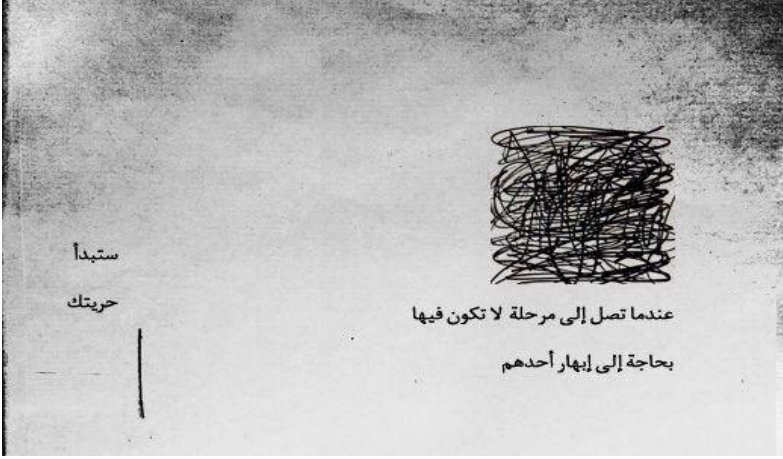 عندما تصل إلى مرحلة لا تكون فيها
بحاجة إلى إبهار أحدهم
ستبدأ
حريتك